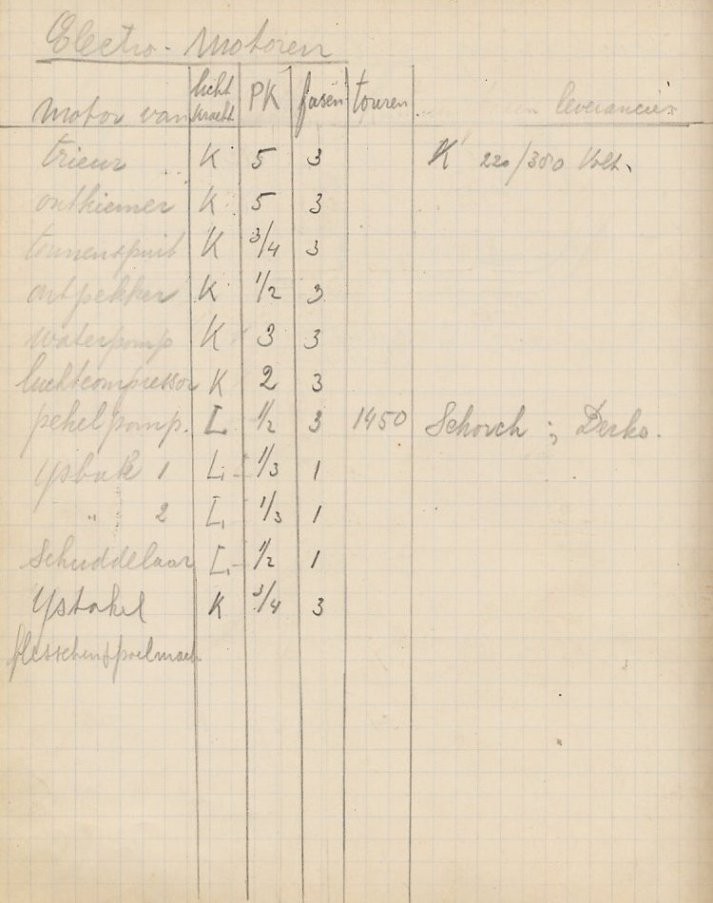 Electro-Motoren
motor van licht kracht PK fasen touren leverancier
trieur K 5 3 K 220/380 Volt.
ontkiemer K 5 3
tonnenspuit K 3/4 3
ontpekker K 1/2 3
waterpomp K 3 3
luchtcompressor K 2 3
pekelpomp. L 1/2 3 1450 Schorch ;
Ysbak 1 L 1/3 1
" 2 L 1/3 1
Schuddelaar L 1/2 1
Ystakel K 3/4 3
flesschenspoelmach